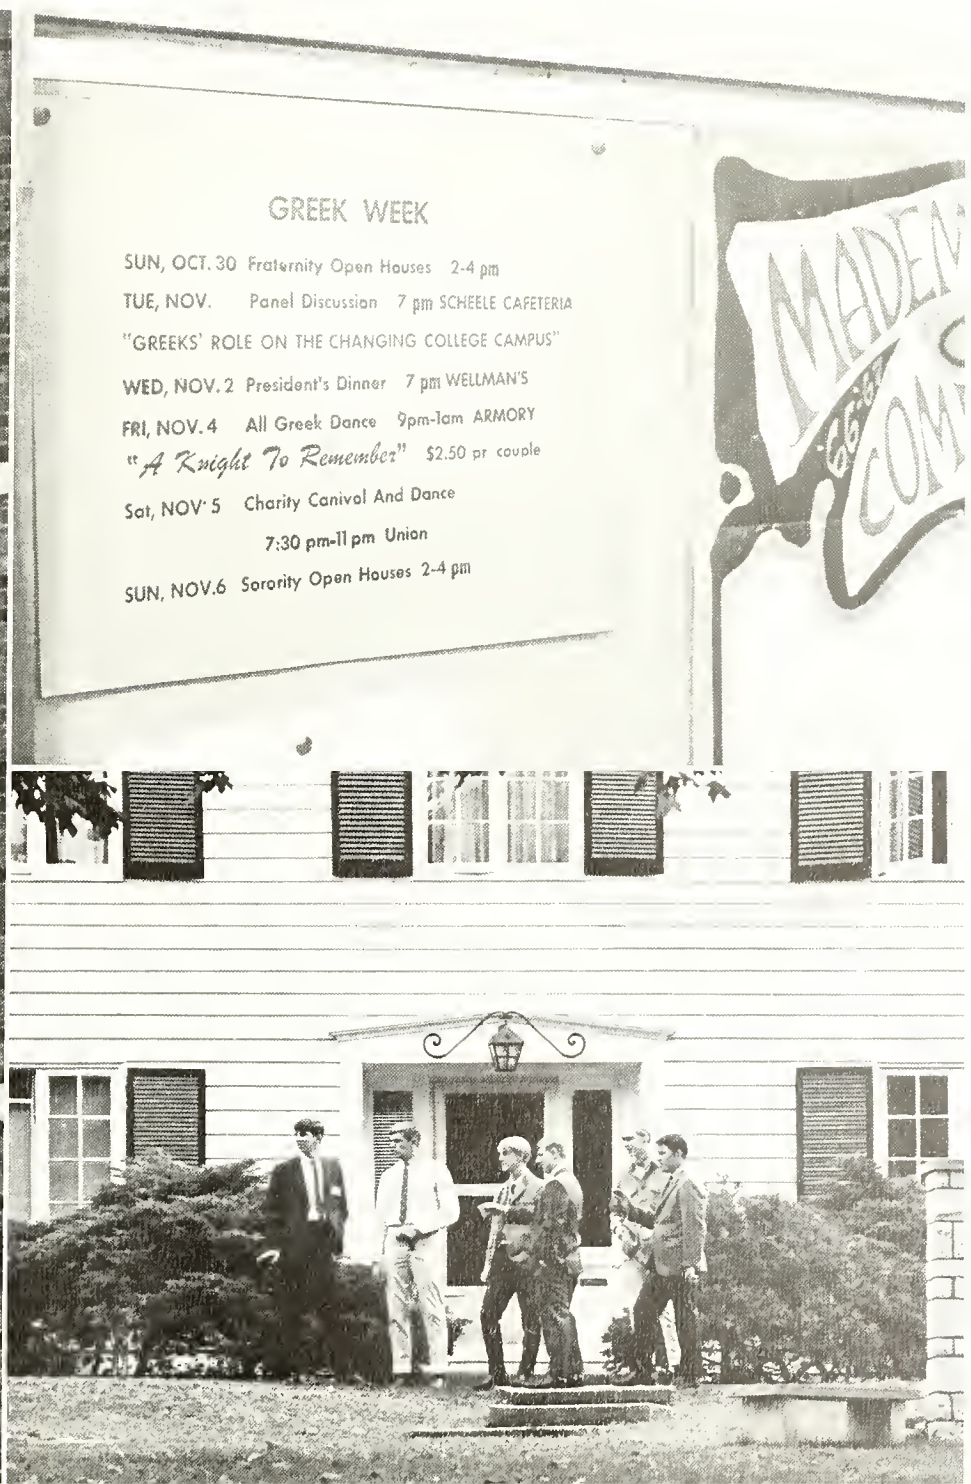 GREEK WEEK
SUN, OCT. 30 Fraternity Open Houses 2-4 pm
TUE, NOV. Panel Discussion 7 pm SCHEELE CAFETERIA
"GREEKS' ROLE ON THE CHANGING COLLEGE CAMPUS"
WED, NOV. 2 President's Dinner 7 pm WELLMAN'S
FRI, NOV. 4 All Greek Dance 9pm-1am ARMORY
"A Knight To Remember" $2.50 pr couple
Sat, NOV 5 Charity Canival And Dance
7:30 pm-11 pm Union
SUN, NOV. 6 Sorority Open Houses 2-4 pm
MADEM
66-67
COM